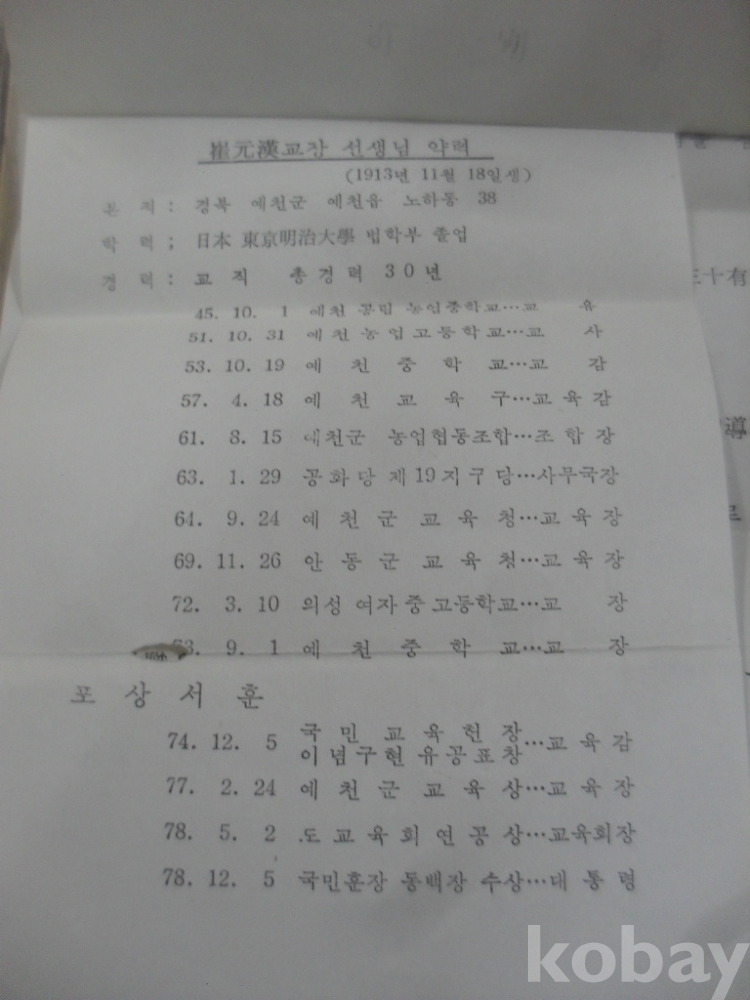 崔元漢교장 선생님 약력
(1913년 11월 18일생)
본 적 : 경북 예천군 예천읍 노하동 38
학 력 ; 日本 東京明治大學 법학부 졸업
경 력 : 교 직 총 경 력 3 0 년
45. 10. 1 예천 공립 농업중학교…교 유
51. 10. 31 예천 농업 고등학교…교 사
53. 10. 19 예 천 중 학 교…교 감
57. 4. 18 예 천 교 육 구…교육감
61. 8. 15 예천군 농업협동조합…조합장
63. 1. 29 공화당 제19지구당…사무국장
64. 9. 24 예 천 군 교 육 청…교육장
69. 11. 26 안 동 군 교 육 청…교육장
72. 3. 10 의성 여자 중고등학교…교 장
73. 9. 1 예 천 중 학 교…교 장
포 상 서 훈
74. 12. 5 국 민 교 육 헌 장
이념구현 유공표창…교육감
77. 2. 24 예 천 군 교 육 상…교육장
78. 5. 2 도교육회연공상…교육회장
78. 12. 5 국민훈장 동백장 수상…대통령
十有
導
kobay